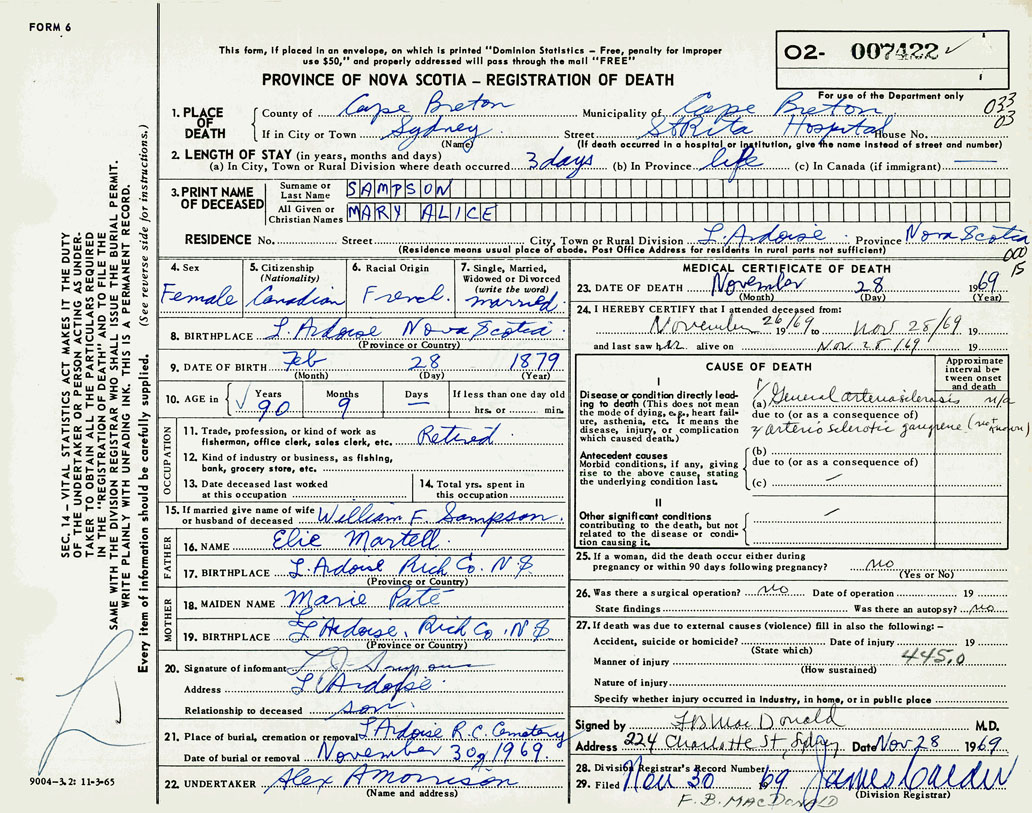 FORM 6
This form, if placed in an envelope, on which is printed "Dominion Statistics – Free, penalty for improper
use $50," and properly addressed will pass through the mail "FREE"
PROVINCE OF NOVA SCOTIA – REGISTRATION OF DEATH
O2- 007422
For use of the Department only
033
03
1. PLACE OF DEATH
County of Cape Breton Municipality of Cape Breton
If in City or Town Sydney Street St Rita Hospital House No.
(Name) (If death occurred in a hospital or institution, give the name instead of street and number)
2. LENGTH OF STAY (in years, months and days)
(a) In City, Town or Rural Division where death occurred 3 days (b) In Province life (c) In Canada (if immigrant) —
3. PRINT NAME OF DECEASED
Surname or Last Name SAMPSON
All Given or Christian Names MARY ALICE
RESIDENCE No. Street City, Town or Rural Division L'Ardoise Province Nova Scotia
(Residence means usual place of abode. Post Office Address for residents in rural parts not sufficient)
000
15
4. Sex Female
5. Citizenship (Nationality) Canadian
6. Racial Origin French
7. Single, Married, Widowed or Divorced (write the word) married
8. BIRTHPLACE L'Ardoise Nova Scotia
(Province or Country)
9. DATE OF BIRTH Feb 28 1879
(Month) (Day) (Year)
10. AGE in Years 90 Months 9 Days — If less than one day old hrs. or min.
OCCUPATION
11. Trade, profession, or kind of work as fisherman, office clerk, sales clerk, etc. Retired
12. Kind of industry or business, as fishing, bank, grocery store, etc.
13. Date deceased last worked at this occupation
14. Total yrs. spent in this occupation
15. If married give name of wife or husband of deceased William F. Sampson
FATHER
16. NAME Elie Martell
17. BIRTHPLACE L'Ardoise Rich Co. N S
(Province or Country)
MOTHER
18. MAIDEN NAME Marie Paté
19. BIRTHPLACE L'Ardoise, Rich Co. N S
(Province or Country)
20. Signature of informant Sampson
Address L'Ardoise
Relationship to deceased son
21. Place of burial, cremation or removal L'Ardoise R.C. Cemetery
Date of burial or removal November 30, 1969
22. UNDERTAKER Alex A Morrison
(Name and address)
MEDICAL CERTIFICATE OF DEATH
23. DATE OF DEATH November 28 1969
(Month) (Day) (Year)
24. I HEREBY CERTIFY that I attended deceased from:
November 26/69 19 to Nov 28/69 19
and last saw her alive on Nov 28/69 19
CAUSE OF DEATH
Approximate interval between onset and death
I
Disease or condition directly leading to death (This does not mean the mode of dying, e.g., heart failure, asthenia, etc. It means the disease, injury, or complication which caused death.)
1/ (a) General arteriosclerosis n/a
due to (or as a consequence of)
2/ arteriosclerotic gangrene (not known)
Antecedent causes
Morbid conditions, if any, giving rise to the above cause, stating the underlying condition last.
(b)
due to (or as a consequence of)
(c) –
II
Other significant conditions contributing to the death, but not related to the disease or condition causing it.
25. If a woman, did the death occur either during pregnancy or within 90 days following pregnancy? no
(Yes or No)
26. Was there a surgical operation? no Date of operation 19
State findings Was there an autopsy? no
27. If death was due to external causes (violence) fill in also the following: –
Accident, suicide or homicide? Date of injury 19
(State which)
445.0
Manner of injury
(How sustained)
Nature of injury
Specify whether injury occurred in industry, in home, or in public place
Signed by F B MacDonald M.D.
Address 224 Charlotte St, Sydney Date Nov 28 1969
28. Division Registrar's Record Number
29. Filed Nov 30 69 James Calder
(Division Registrar)
F. B. MACDONALD
SEC. 14 – VITAL STATISTICS ACT MAKES IT THE DUTY
OF THE UNDERTAKER OR PERSON ACTING AS UNDER-
TAKER TO OBTAIN ALL THE PARTICULARS REQUIRED
IN THE "REGISTRATION OF DEATH" AND TO FILE THE
SAME WITH THE DIVISION REGISTRAR WHO SHALL ISSUE THE BURIAL PERMIT.
WRITE PLAINLY WITH UNFADING INK. THIS IS A PERMANENT RECORD.
Every item of information should be carefully supplied. (See reverse side for instructions.)
9004-3.2: 11-3-65